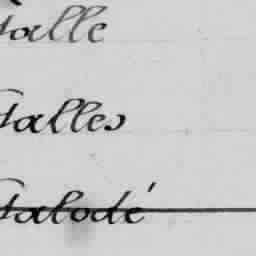 Talle
Talles
Talodé